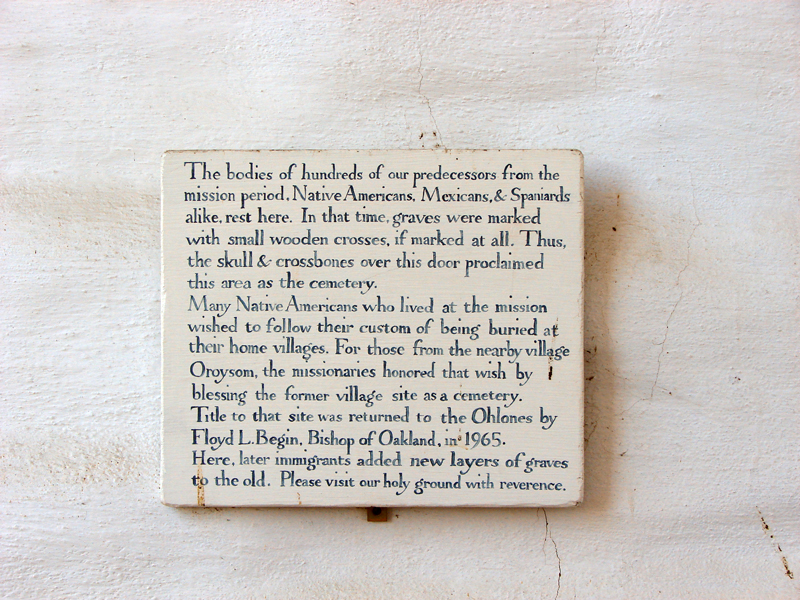 The bodies of hundreds of our predecessors from the
mission period, Native Americans, Mexicans, & Spaniards
alike, rest here. In that time, graves were marked
with small wooden crosses, if marked at all. Thus,
the skull & crossbones over this door proclaimed
this area as the cemetery.
Many Native Americans who lived at the mission
wished to follow their custom of being buried at
their home villages. For those from the nearby village
Oroysom, the missionaries honored that wish by
blessing the former village site as a cemetery.
Title to that site was returned to the Ohlones by
Floyd L. Begin, Bishop of Oakland, in 1965.
Here, later immigrants added new layers of graves
to the old. Please visit our holy ground with reverence.